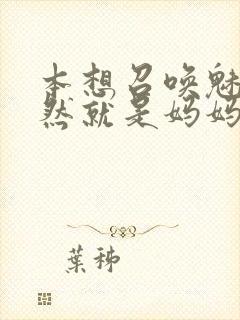 本想召唤魅
然就是妈妈
葉秭